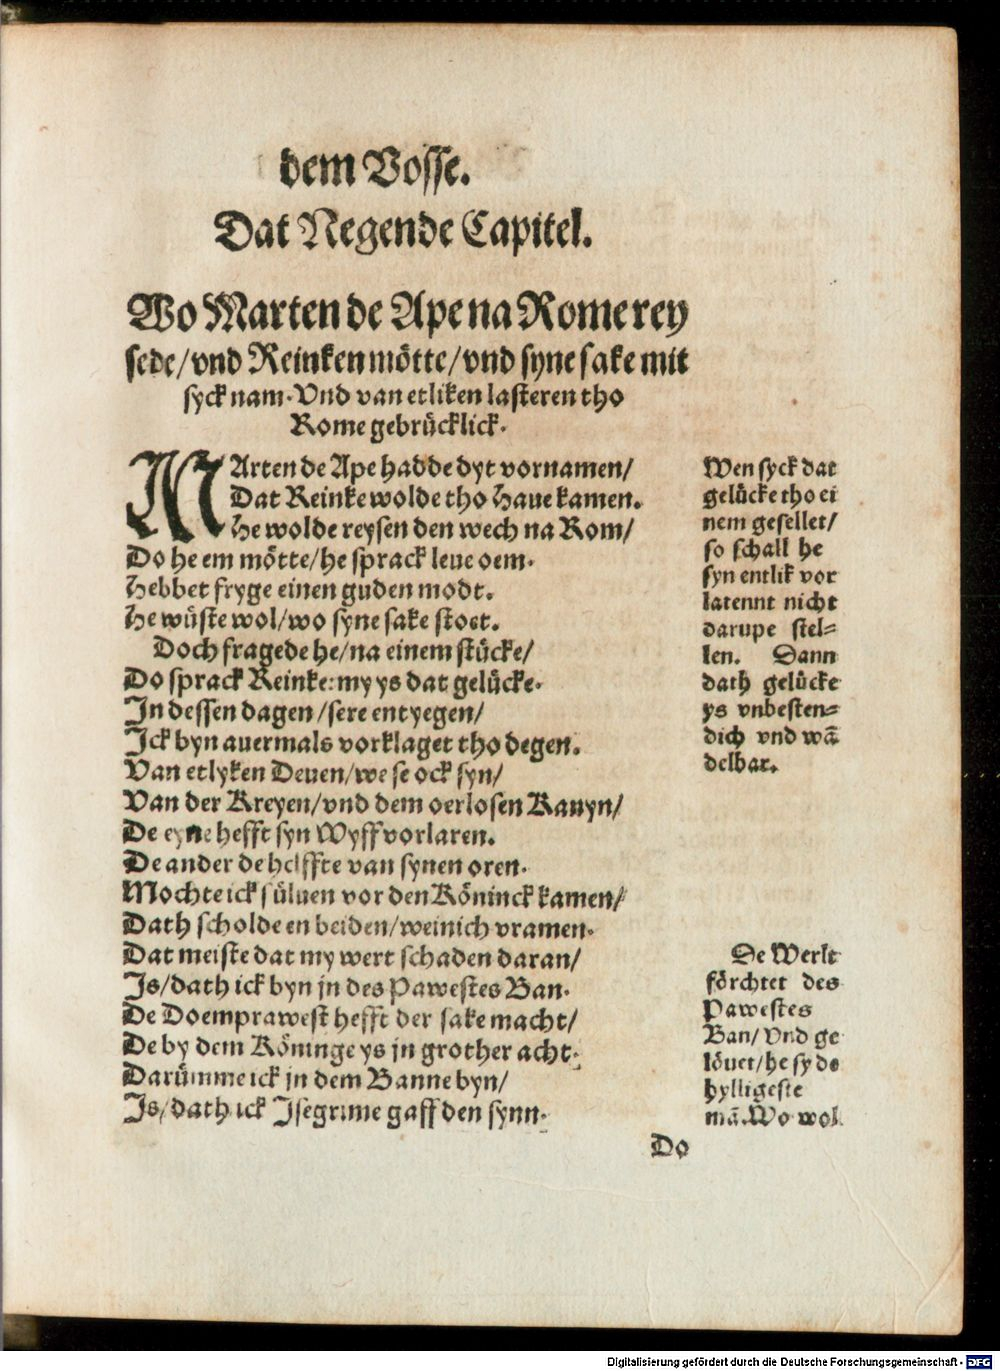 dem Vosse.
Dat Negende Capitel.
Wo Marten de Ape na Rome rey
sede/vnd Reinken mötte/vnd syne sake mit
syck nam. Vnd van etliken lasteren tho
Rome gebrücklick.
MArten de Ape hadde dyt vornamen/
Dat Reinke wolde tho Haue kamen.
He wolde reysen den wech na Rom/
Do he em mötte/he sprack leue oem.
Hebbet fryge einen guden modt.
He wüste wol/wo syne sake stoet.
Doch fragede he/na einem stücke/
Do sprack Reinke: my ys dat gelücke.
In dessen dagen/sere entyegen/
Ick byn auermals vorklaget tho degen.
Van etlyken Deuen/we se ock syn/
Van der Kreyen/vnd dem oerlosen Kauyn/
De eyne hefft syn Wyff vorlaren.
De ander de helffte van synen oren.
Mochte ick süluen vor den Köninck kamen/
Dath scholde en beiden/weinich vramen.
Dat meiste dat my wert schaden daran/
Js/dath ick byn jn des Pawestes Ban.
De Doemprawest hefft der sake macht/
De by dem Köninge ys jn grother acht.
Darümme ick jn dem Banne byn/
Js/dath ick Jsegrime gaff den synn.
Wen syck dat
gelücke tho ei
nem gesellet/
so schall he
syn entlik vor
latennt nicht
darupe stel=
len. Dann
dath gelücke
ys vnbesten=
dich vnd wā
delbar.
De Werlt
förchtet des
Pawestes
Ban/ Vnd ge
löuet/he sy de
hylligeste
mā. Wo wol
Do
Digitalisierung gefördert durch die Deutsche Forschungsgemeinschaft - DFG